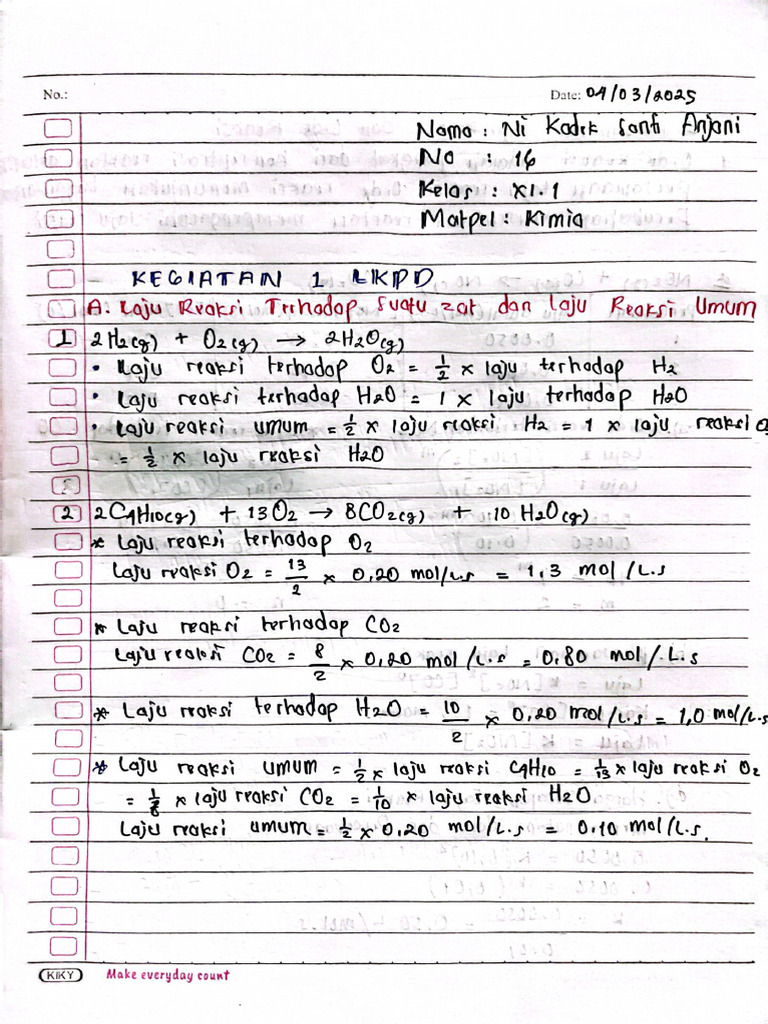 No.:
Date: 04/03/2025
Nama : Ni Kadek Santi Anjani
No : 16
Kelas : XI.1
Matpel : Kimia
KEGIATAN 1 LKPD
A. Laju Reaksi Terhadap Suatu zat dan Laju Reaksi Umum
1 2H₂(g) + O₂(g) → 2H₂O(g)
• Laju reaksi terhadap O₂ = 1/2 x laju terhadap H₂
• Laju reaksi terhadap H₂O = 1 x laju terhadap H₂O
• Laju reaksi umum = 1/2 x laju reaksi H₂ = 1 x laju reaksi O₂
= 1/2 x laju reaksi H₂O
2 2C₄H₁₀(g) + 13O₂ → 8CO₂(g) + 10 H₂O(g)
* Laju reaksi terhadap O₂
Laju reaksi O₂ = 13/2 x 0,20 mol/L.s = 1,3 mol/L.s
* Laju reaksi terhadap CO₂
Laju reaksi CO₂ = 8/2 x 0,20 mol/L.s = 0,80 mol/L.s
* Laju reaksi terhadap H₂O = 10/2 x 0,20 mol/L.s = 1,0 mol/L.s
* Laju reaksi umum = 1/2 x laju reaksi C₄H₁₀ = 1/13 x laju reaksi O₂
= 1/8 x laju reaksi CO₂ = 1/10 x laju reaksi H₂O
Laju reaksi umum = 1/2 x 0,20 mol/L.s = 0,10 mol/L.s.
KIKY Make everyday count